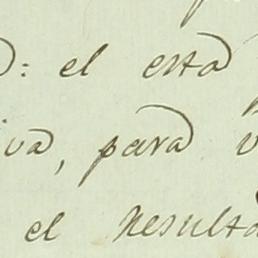 : el esta
iva, para
el Resulta